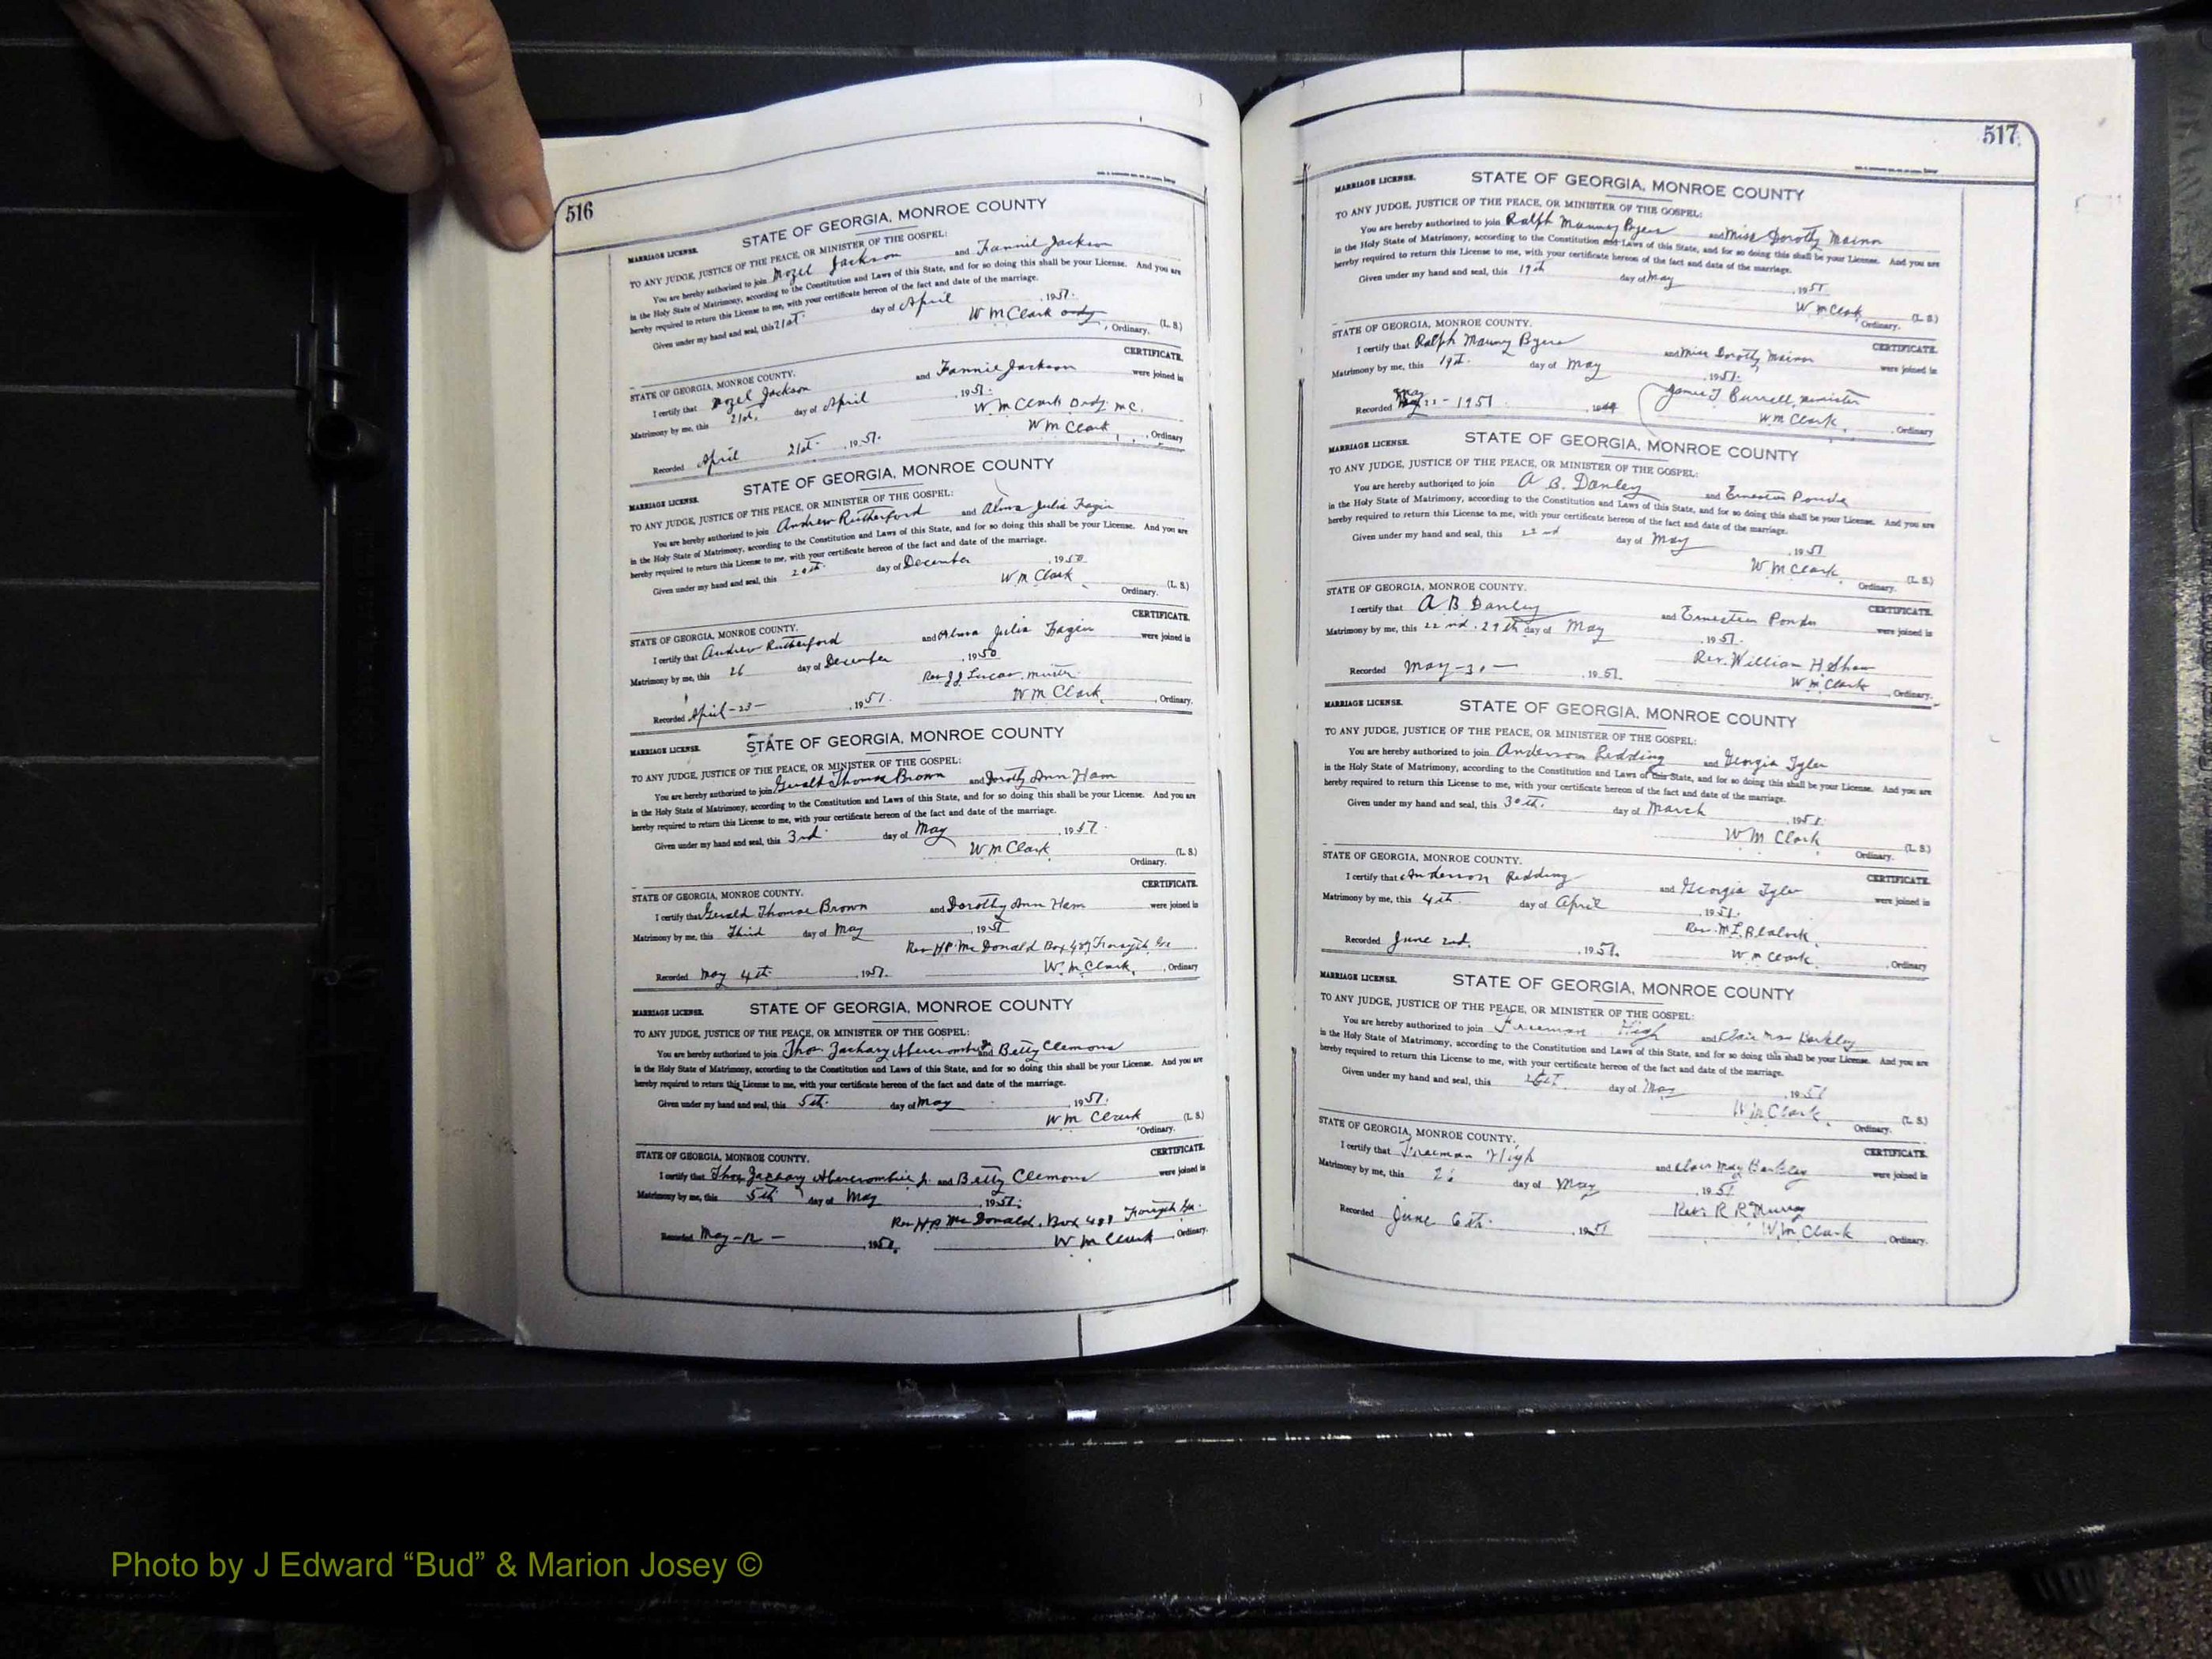 516
MARRIAGE LICENSE. STATE OF GEORGIA, MONROE COUNTY
TO ANY JUDGE, JUSTICE OF THE PEACE, OR MINISTER OF THE GOSPEL:
You are hereby authorized to join Mozel Jackson and Fannie Jackson
in the Holy State of Matrimony, according to the Constitution and Laws of this State, and for so doing this shall be your License. And you are
hereby required to return this License to me, with your certificate hereon of the fact and date of the marriage.
Given under my hand and seal, this 21st. day of April , 1951.
W M Clark ordy (L. S.)
Ordinary.
STATE OF GEORGIA, MONROE COUNTY. CERTIFICATE.
I certify that Mozel Jackson and Fannie Jackson were joined in
Matrimony by me, this 21st. day of April , 1951.
W. M Clark Ordy. M C.
Recorded April 21st. , 1951. W M Clark , Ordinary
MARRIAGE LICENSE. STATE OF GEORGIA, MONROE COUNTY
TO ANY JUDGE, JUSTICE OF THE PEACE, OR MINISTER OF THE GOSPEL:
You are hereby authorized to join Andrew Rutherford and Alma Julia Fagin
in the Holy State of Matrimony, according to the Constitution and Laws of this State, and for so doing this shall be your License. And you are
hereby required to return this License to me, with your certificate hereon of the fact and date of the marriage.
Given under my hand and seal, this 20th. day of December , 1950
W. M Clark (L. S.)
Ordinary.
STATE OF GEORGIA, MONROE COUNTY. CERTIFICATE.
I certify that Andrew Rutherford and Alma Julia Fagin were joined in
Matrimony by me, this 26 day of December , 1950
Rev J J Lucas,
Recorded April-23- , 1951. W M Clark , Ordinary.
MARRIAGE LICENSE. STATE OF GEORGIA, MONROE COUNTY
TO ANY JUDGE, JUSTICE OF THE PEACE, OR MINISTER OF THE GOSPEL:
You are hereby authorized to join Gerald Thomas Brown and Dorothy Ann Ham
in the Holy State of Matrimony, according to the Constitution and Laws of this State, and for so doing this shall be your License. And you are
hereby required to return this License to me, with your certificate hereon of the fact and date of the marriage.
Given under my hand and seal, this 3rd. day of May , 1951.
W M Clark (L. S.)
Ordinary.
STATE OF GEORGIA, MONROE COUNTY. CERTIFICATE.
I certify that Gerald Thomas Brown and Dorothy Ann Ham were joined in
Matrimony by me, this Third day of May , 1951
Rev H P. McDonald Box 489 Forsyth Ga.
Recorded May 4th. , 1951. W. M Clark , Ordinary
MARRIAGE LICENSE. STATE OF GEORGIA, MONROE COUNTY
TO ANY JUDGE, JUSTICE OF THE PEACE, OR MINISTER OF THE GOSPEL:
You are hereby authorized to join Thos. Zachary Abercrombie and Betty Clemons
in the Holy State of Matrimony, according to the Constitution and Laws of this State, and for so doing this shall be your License. And you are
hereby required to return this License to me, with your certificate hereon of the fact and date of the marriage.
Given under my hand and seal, this 5th. day of May , 1951.
W M Clark (L. S.)
Ordinary.
STATE OF GEORGIA, MONROE COUNTY. CERTIFICATE.
I certify that Thos. Zachary Abercrombie Jr. and Betty Clemons were joined in
Matrimony by me, this 5th day of May , 1951.
Rev H P. McDonald, Box 489 Forsyth Ga.
Recorded May-12- , 1951. W M Clark , Ordinary.
517
MARRIAGE LICENSE. STATE OF GEORGIA, MONROE COUNTY
TO ANY JUDGE, JUSTICE OF THE PEACE, OR MINISTER OF THE GOSPEL:
You are hereby authorized to join Ralph Byers and Miss Dorothy
in the Holy State of Matrimony, according to the Constitution and Laws of this State, and for so doing this shall be your License. And you are
hereby required to return this License to me, with your certificate hereon of the fact and date of the marriage.
Given under my hand and seal, this 19th day of May , 1951
W M Clark (L. S.)
Ordinary.
STATE OF GEORGIA, MONROE COUNTY. CERTIFICATE.
I certify that Ralph Byers and Miss Dorothy were joined in
Matrimony by me, this 19th. day of May , 1951.
James T. Burrell, minister
Recorded May 22-1951 , 19 W M Clark , Ordinary
MARRIAGE LICENSE. STATE OF GEORGIA, MONROE COUNTY
TO ANY JUDGE, JUSTICE OF THE PEACE, OR MINISTER OF THE GOSPEL:
You are hereby authorized to join A. B. Danley and
in the Holy State of Matrimony, according to the Constitution and Laws of this State, and for so doing this shall be your License. And you are
hereby required to return this License to me, with your certificate hereon of the fact and date of the marriage.
Given under my hand and seal, this 22nd day of May , 1951
W M Clark (L. S.)
Ordinary.
STATE OF GEORGIA, MONROE COUNTY. CERTIFICATE.
I certify that A B Danley and were joined in
Matrimony by me, this 22nd. 29th day of May , 1951.
Rev. William H. Shaw
Recorded May-30- , 1951. W M Clark , Ordinary.
MARRIAGE LICENSE. STATE OF GEORGIA, MONROE COUNTY
TO ANY JUDGE, JUSTICE OF THE PEACE, OR MINISTER OF THE GOSPEL:
You are hereby authorized to join Anderson Redding and Georgia Tyler
in the Holy State of Matrimony, according to the Constitution and Laws of this State, and for so doing this shall be your License. And you are
hereby required to return this License to me, with your certificate hereon of the fact and date of the marriage.
Given under my hand and seal, this 30th. day of March , 1951.
W M Clark (L. S.)
Ordinary.
STATE OF GEORGIA, MONROE COUNTY. CERTIFICATE.
I certify that Anderson Redding and Georgia Tyler were joined in
Matrimony by me, this 4th. day of April , 1951.
Rev. M. L. Blalock.
Recorded June 2nd. , 1951. W M Clark. , Ordinary
MARRIAGE LICENSE. STATE OF GEORGIA, MONROE COUNTY
TO ANY JUDGE, JUSTICE OF THE PEACE, OR MINISTER OF THE GOSPEL:
You are hereby authorized to join Freeman High and Barkley
in the Holy State of Matrimony, according to the Constitution and Laws of this State, and for so doing this shall be your License. And you are
hereby required to return this License to me, with your certificate hereon of the fact and date of the marriage.
Given under my hand and seal, this day of May , 1951
W M Clark (L. S.)
Ordinary.
STATE OF GEORGIA, MONROE COUNTY. CERTIFICATE.
I certify that Freeman High and May Barkley were joined in
Matrimony by me, this 26 day of May , 1951
Rev. R R
Recorded June 6th. , 1951 W. M Clark , Ordinary.
Photo by J Edward “Bud” & Marion Josey ©